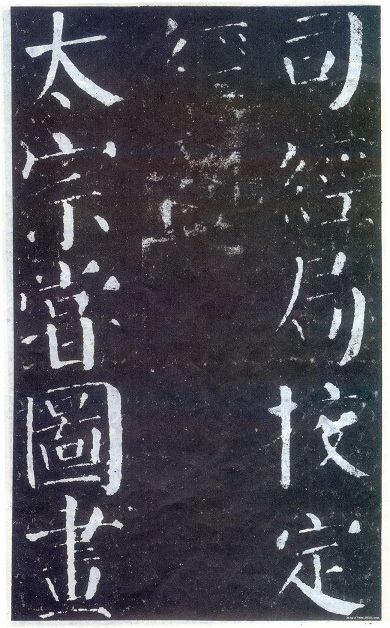 司經局挍定
經
太宗嘗圖畫